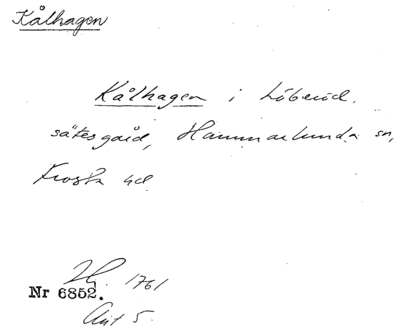 Kålhagen
Kålhagen i Löberöd.
sätesgård, Hammarlunda sn,
Frosta hd.
1761
Nr 6852.
Akt 5.